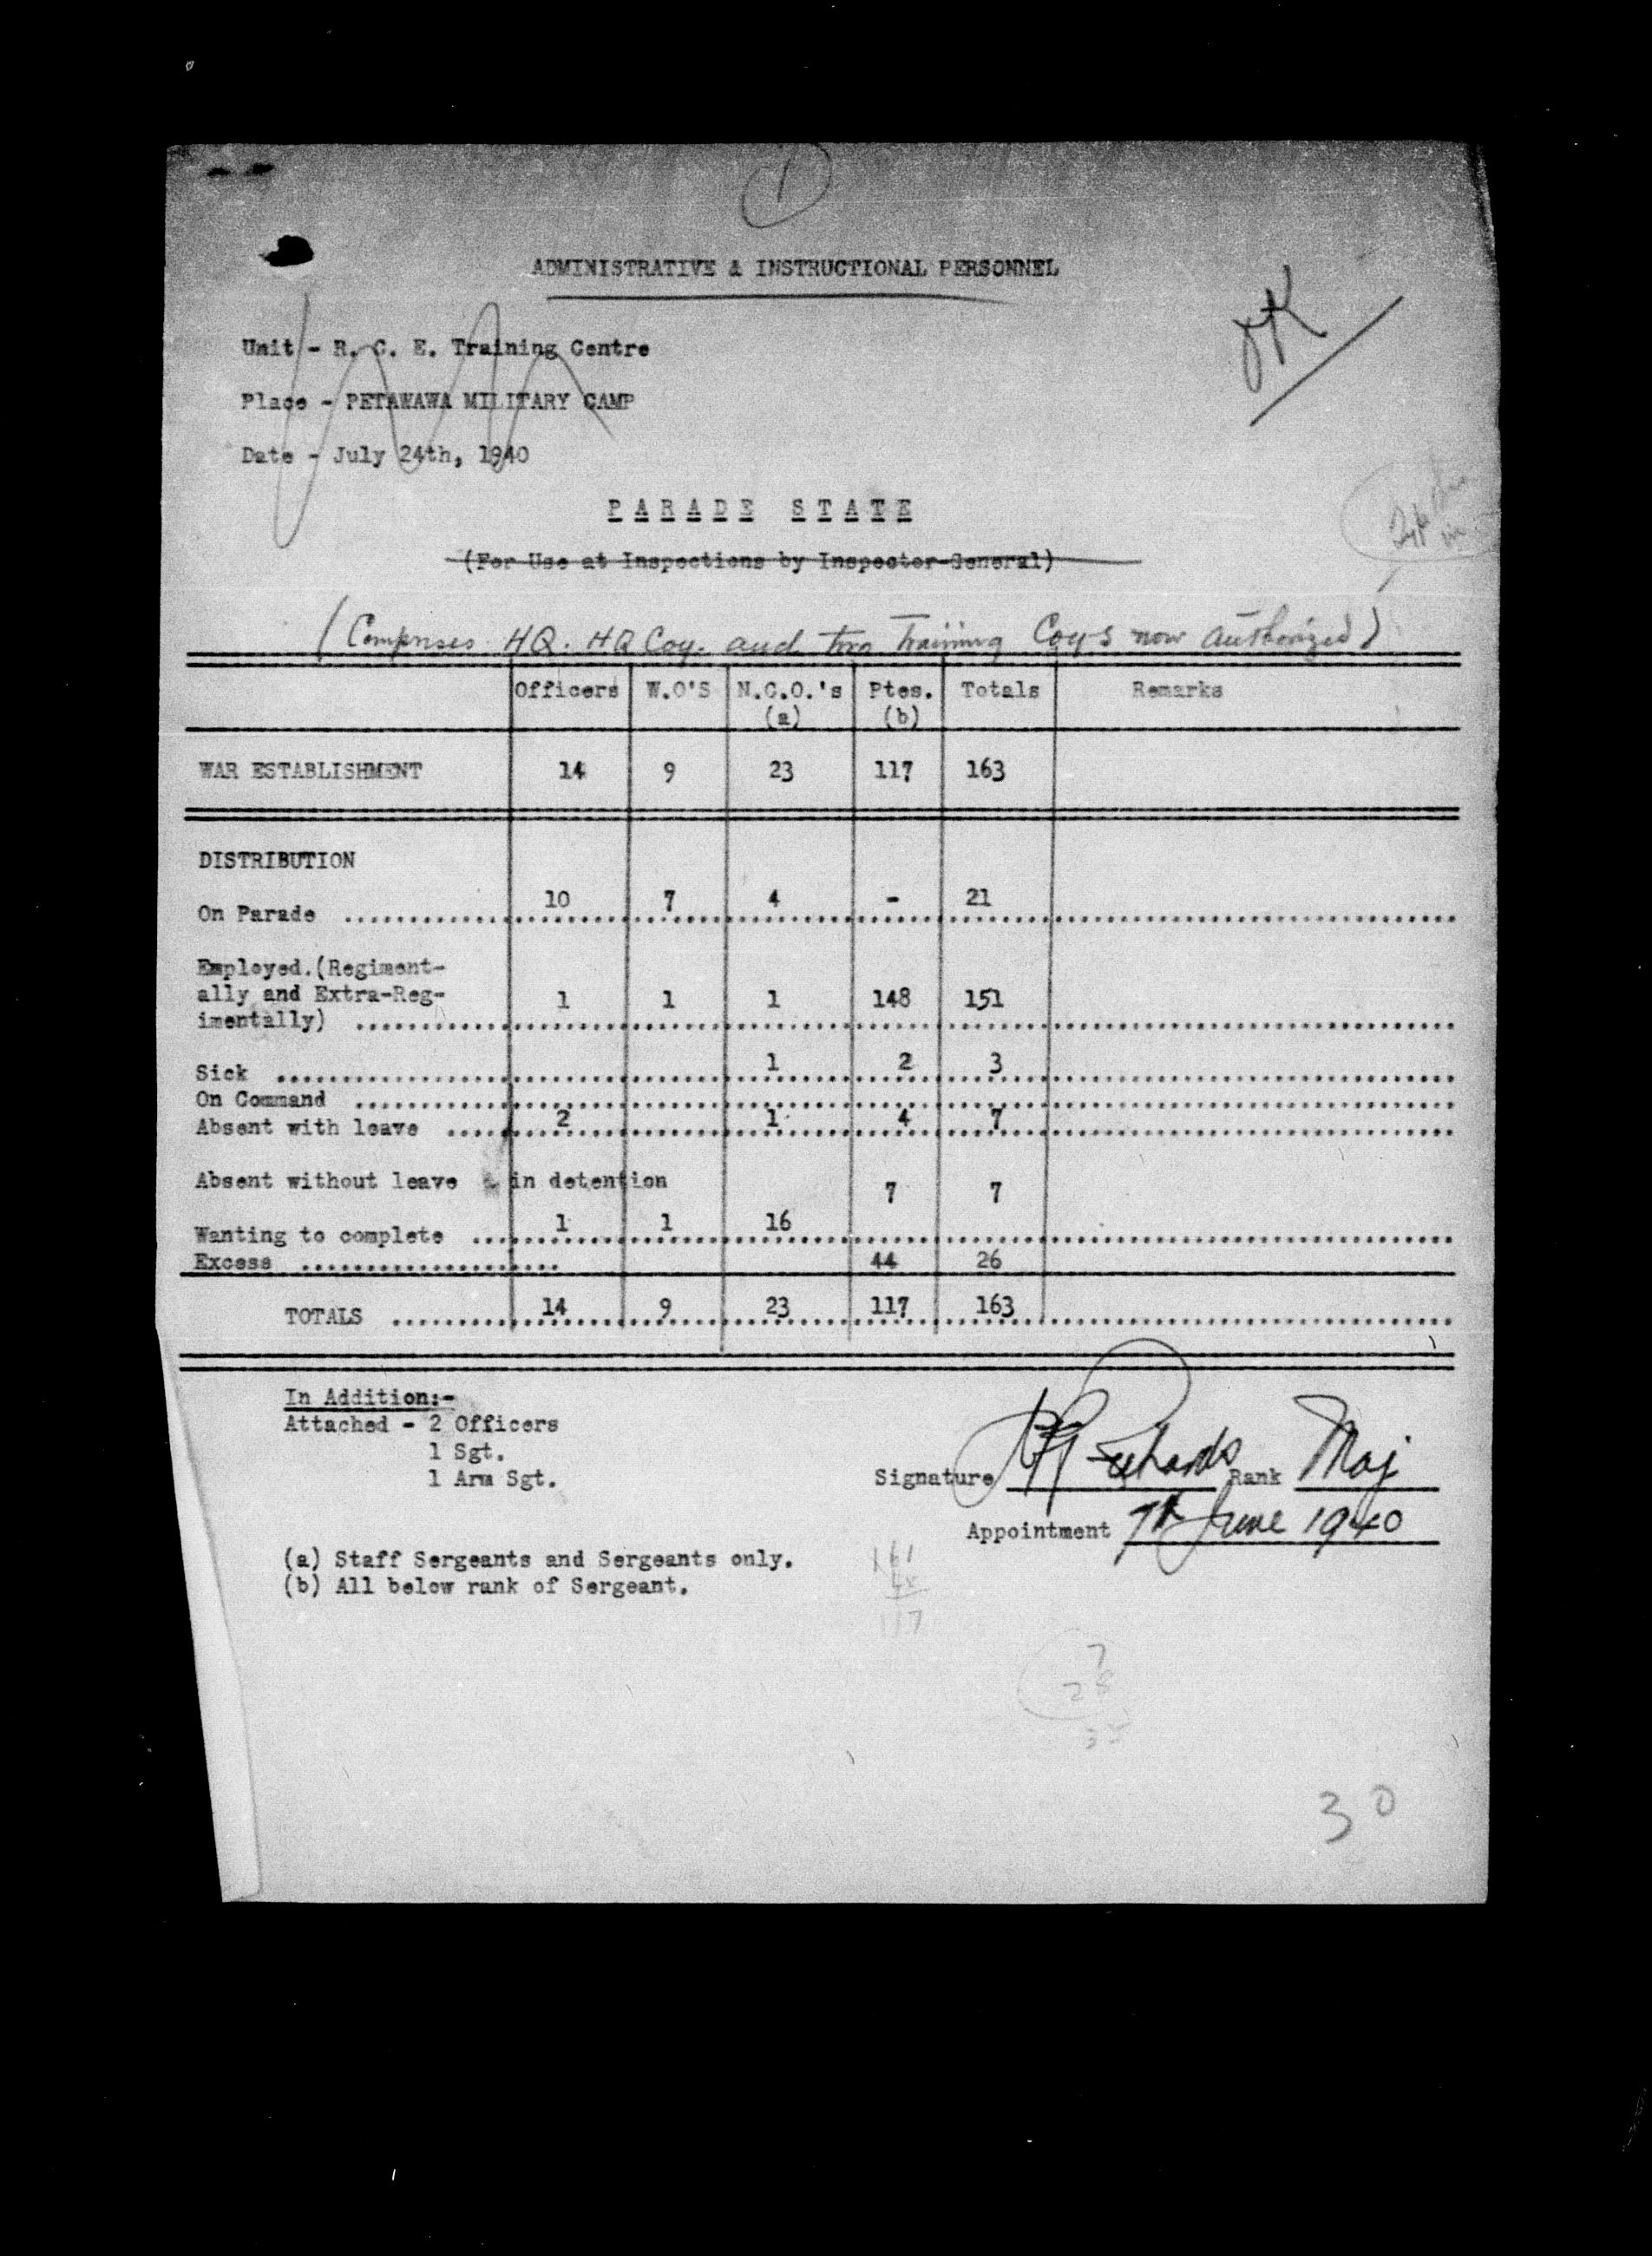 1
ADMINISTRATIVE & INSTRUCTIONAL PERSONNEL
OK
Unit - R. C. E. Training Centre
Place - PETAWAWA MILITARY CAMP
Date - July 24th, 1940
PARADE STATE
(For Use at Inspections by Inspector-General)
(Comprises HQ. HQ Coy. and two Training Coys now authorized)
Officers W.O'S N.C.O.'s Ptes. Totals Remarks
(a) (b)
WAR ESTABLISHMENT 14 9 23 117 163
DISTRIBUTION
On Parade 10 7 4 - 21
Employed.(Regiment-
ally and Extra-Reg-
imentally) 1 1 1 148 151
Sick 1 2 3
On Command
Absent with leave 2 1 4 7
Absent without leave & in detention 7 7
Wanting to complete 1 1 16
Excess 44 26
TOTALS 14 9 23 117 163
In Addition:-
Attached - 2 Officers
1 Sgt.
1 Arm Sgt.
Signature Richards Rank Maj
Appointment 7th June 1940
(a) Staff Sergeants and Sergeants only.
(b) All below rank of Sergeant.
161
117
7
28
35
30